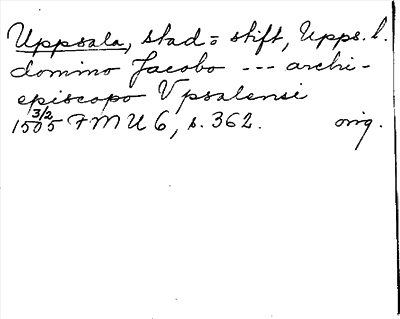 Uppsala, stad = stift, Upps. l.
domino Jacobo --- archi-
episcopo Vpsalensi
3/2
1505 FMU 6, s. 362. orig.